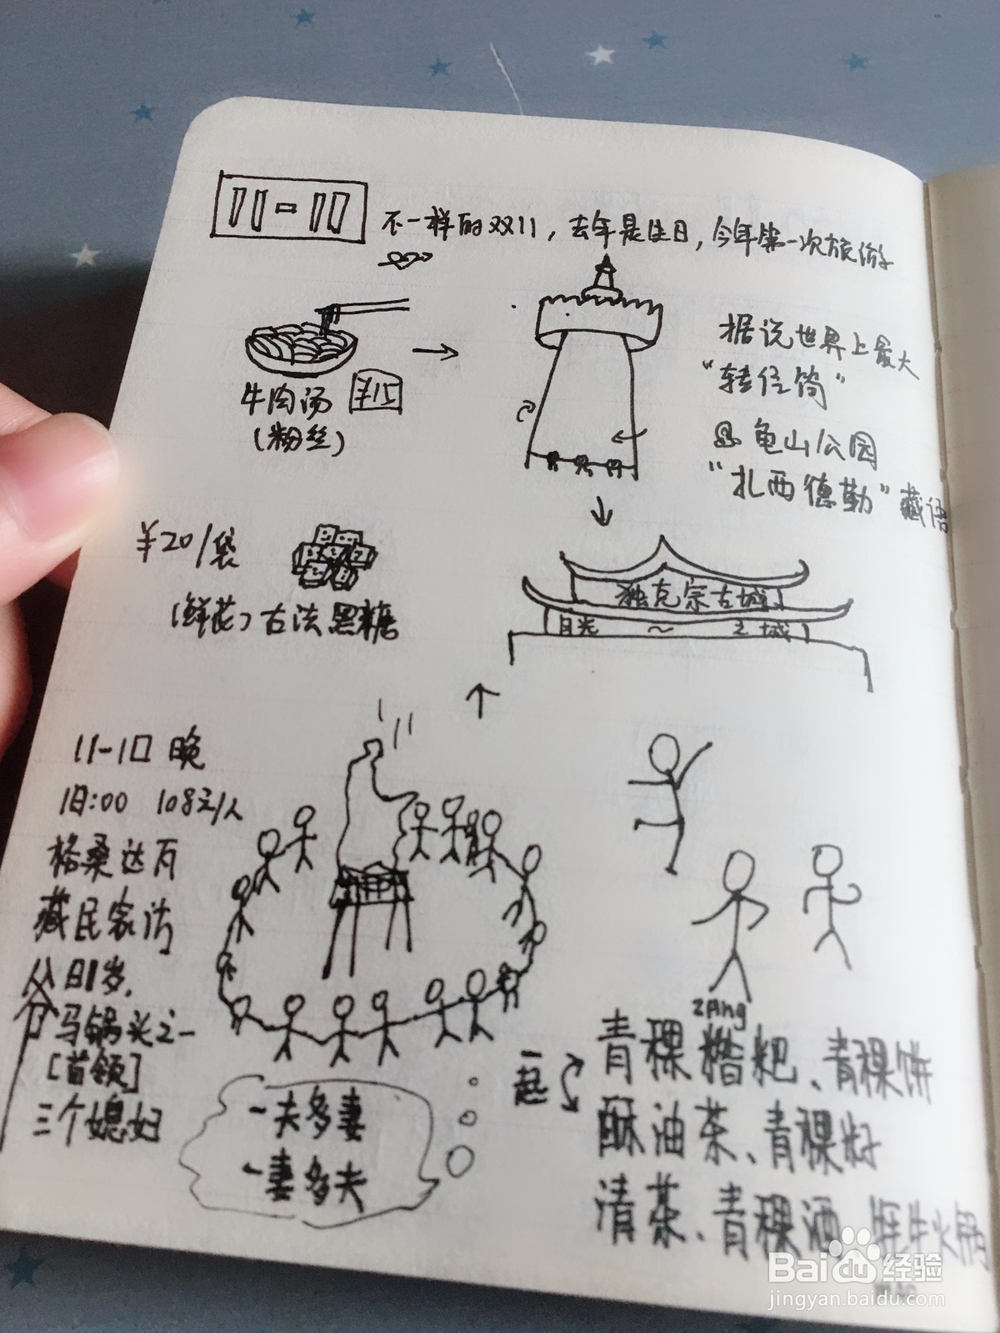 11-11
不一样的双11，去年是生日，今年第一次旅游
牛肉汤 ¥15
(粉丝)
据说世界上最大
"转经筒"
龟山公园
"扎西德勒"藏语
¥20/袋
(鲜花)古法黑糖
独克宗古城
月光～之城
11-10 晚
18:00 108元/人
格桑达瓦
藏民家访
81岁，
马锅头之一
[首领]
三个媳妇
一夫多妻
一妻多夫
一起
zang
青稞糌粑、青稞饼
酥油茶、青稞籽
清茶、青稞酒、牦牛火锅
Baidu经验
jingyan.baidu.com